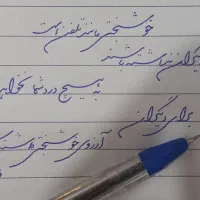 خوشبختی مانند تلفن است
دیگران نداشته باشند
به هیچ درد شما نخواهد
برای دیگران
آرزوی خوشبختی داشته